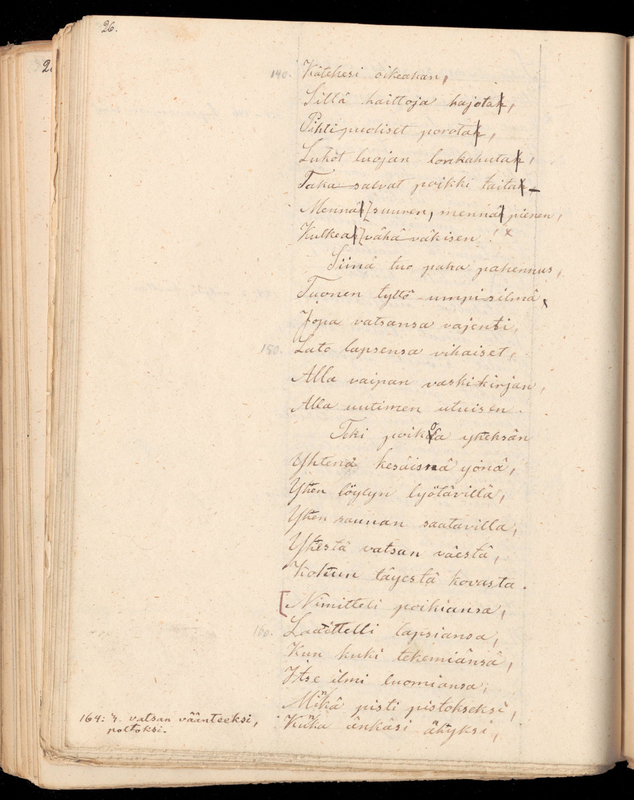 26.
140. Kätehesi oikeahan,
Sillä haittoja hajotak,
Pihtipuoliset porotak,
Luhöt luojan lonkahutak,
Taka-salvat poikki taitak –
Mennä [suuren, mennä pienen,
Kulkea [vähä väkisen! x
Siinä tuo paha pahennus,
Tuonen tyttö umpi-silmä,
Jopa vatsansa vajenti,
150. Lato lapsensa vihaiset,
Alla vaipan vaskikirjan,
Alla uutimen utuisen.
Teki poikoa yheksän
Yhtenä kesäisnä yönä,
Yhen löylyn lyötävillä,
Yhen saunan saatavilla,
Yhestä vatsan väestä,
Kohun täyestä kovasta.
[Nimitteli poikiansa,
160. Laaitteli lapsiansa,
Kun kuki tekemiänsä,
Itse ilmi luomiansa;
Mikä pisti pistokseksi,
Kuka änkäsi ähyksi,
164: r. vatsan väänteeksi,
polioksi.